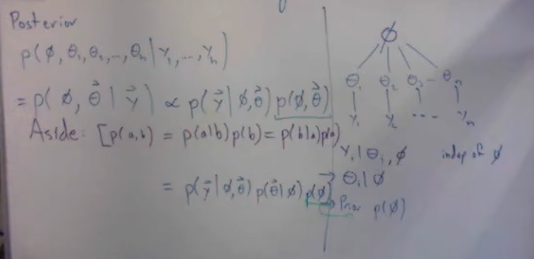 Posterior
p(φ, θ₁, θ₂, ..., θₙ | Y₁, ..., Yₙ)
= p(φ, θ⃗ | y⃗) ∝ p(y⃗ | φ, θ⃗) p(φ, θ⃗)
Aside: [p(a,b) = p(a|b) p(b) = p(b|a) p(a)
= p(y⃗ | φ, θ⃗) p(θ⃗ | φ) p(φ)
φ
θ₁ θ₂ θ₃ ... θₙ
Y₁ Y₂ ... Yₙ
Y₁ | θ₁, φ indep of φ
→ θ₁ | φ
→ Prior p(φ)